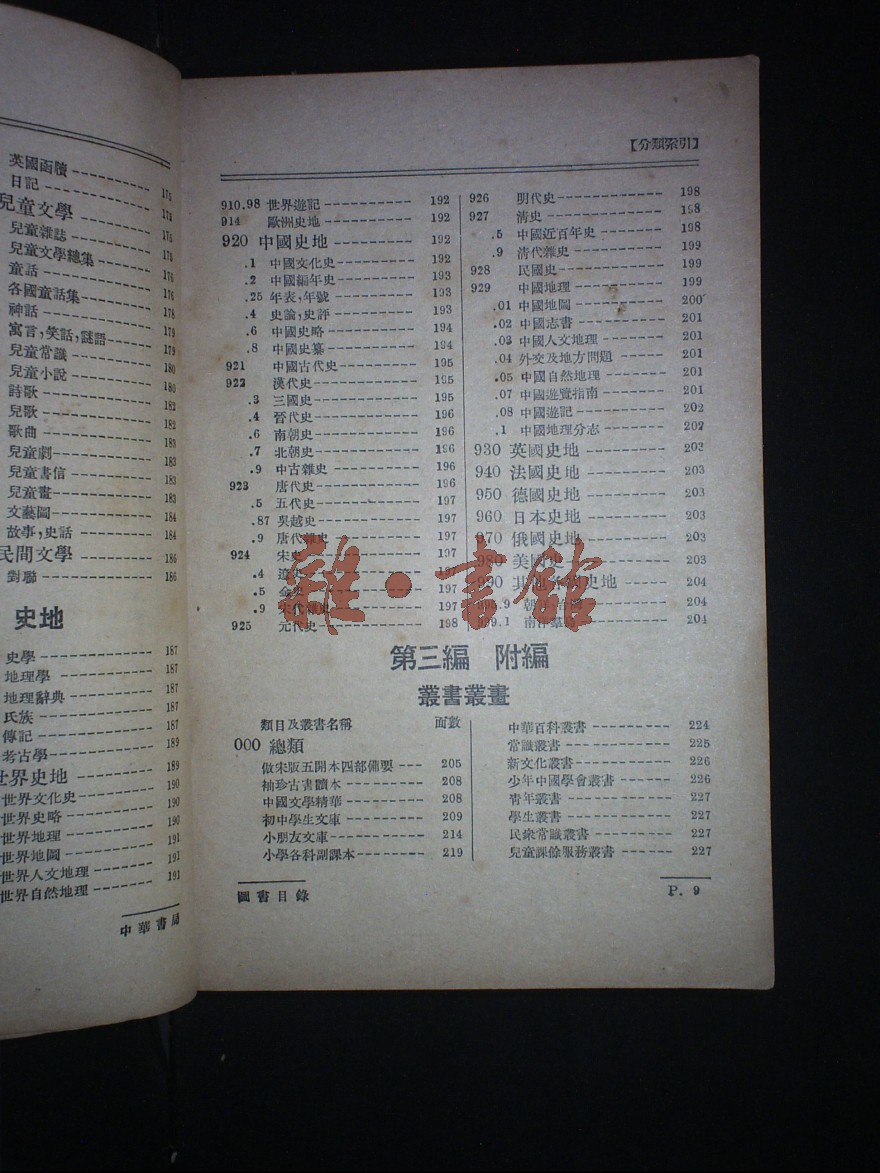 英國函牘 175
日記 175
兒童文學 175
兒童雜誌 175
兒童文學總集 175
童話 176
各國童話集 176
神話 178
寓言,笑話,謎語 179
兒童常識 179
兒童小說 180
詩歌 180
兒歌 182
歌曲 182
兒童劇 183
兒童書信 183
兒童畫 183
文藝圖 184
故事,史話 184
民間文學 186
對聯 186
史地
史學 187
地理學 187
地理辭典 187
氏族 187
傳記 187
考古學 189
世界史地 189
世界文化史 190
世界史略 190
世界地理 191
世界地圖 191
世界人文地理 191
世界自然地理 191
中華書局
【分類索引】
910.98 世界遊記 192
914 歐洲史地 192
920 中國史地 192
.1 中國文化史 192
.2 中國編年史 193
.25 年表,年號 193
.4 史論,史評 193
.6 中國史略 194
.8 中國史纂 194
921 中國古代史 195
922 漢代史 195
.3 三國史 195
.4 晉代史 196
.6 南朝史 196
.7 北朝史 196
.9 中古雜史 196
923 唐代史 196
.5 五代史 197
.87 吳越史 197
.9 唐代雜史 197
924 宋史 197
.4 遼史 197
.5 金史 197
.9 宋代雜史 197
925 元代史 198
926 明代史 198
927 清史 198
.5 中國近百年史 198
.9 清代雜史 199
928 民國史 199
929 中國地理 199
.01 中國地圖 200
.02 中國志書 201
.03 中國人文地理 201
.04 外交及地方問題 201
.05 中國自然地理 201
.07 中國遊覽指南 201
.08 中國遊記 202
.1 中國地理分志 202
930 英國史地 203
940 法國史地 203
950 德國史地 203
960 日本史地 203
970 俄國史地 203
980 美國史 203
990 其他各國史地 204
995.9 朝鮮,台灣 204
999.1 南洋羣島 204
雜·書館
第三編 附編
叢書叢畫
類目及叢書名稱 面數
000 總類
倣宋版五開本四部備要 205
袖珍古書讀本 208
中國文學精華 208
初中學生文庫 209
小朋友文庫 214
小學各科副課本 219
中華百科叢書 224
常識叢書 225
新文化叢書 226
少年中國學會叢書 226
青年叢書 227
學生叢書 227
民衆常識叢書 227
兒童課餘服務叢書 227
圖書目錄
P. 9